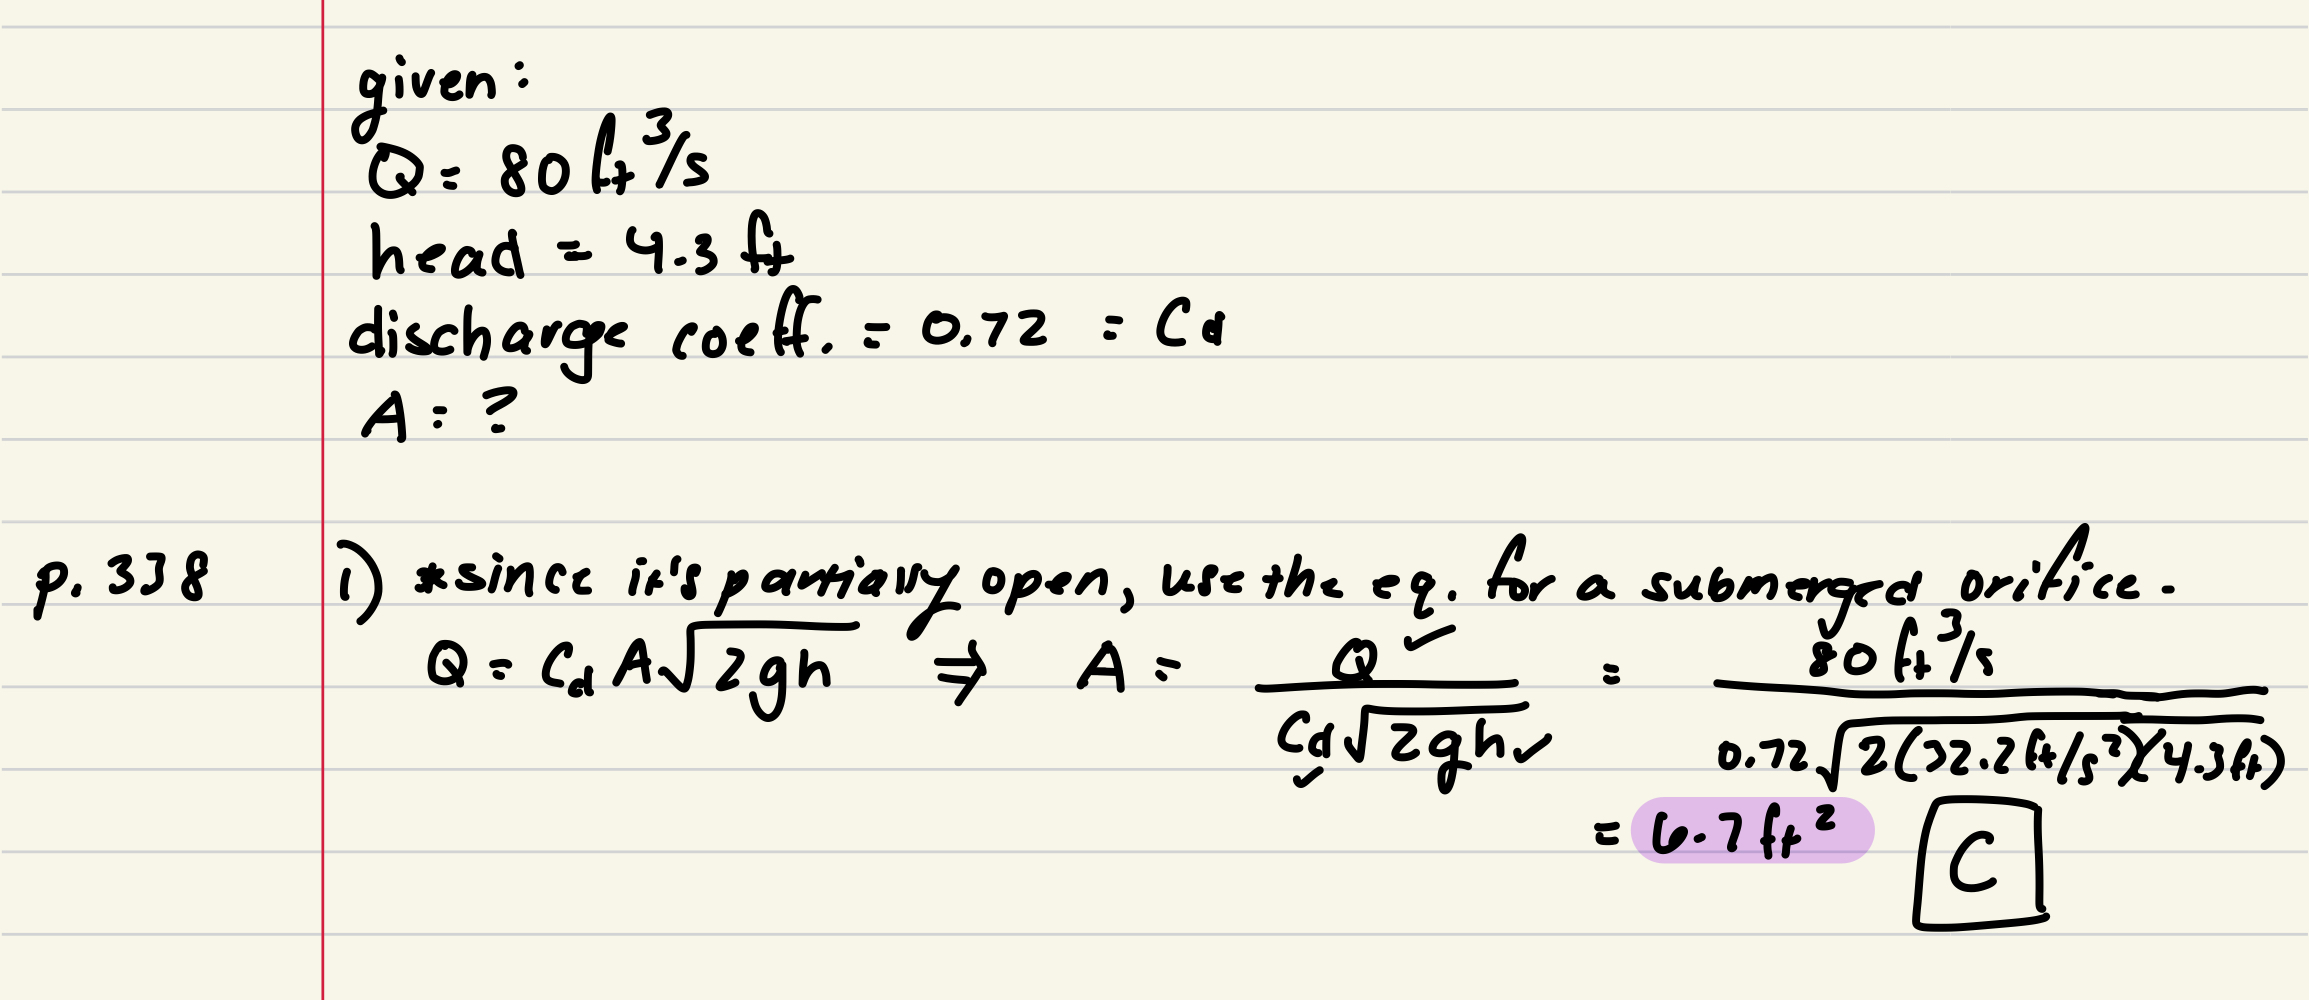 given:
Q = 80 ft³/s
head = 4.3 ft
discharge coeff. = 0.72 = Cd
A = ?
p. 338 1) *since it's partially open, use the eq. for a submerged orifice.
Q = Cd A√2gh ⇒ A = Q ✓ / Cd√2gh ✓ ✓ = 80 ft³/s / 0.72√2(32.2 ft/s²)(4.3ft)
= 6.7 ft² C